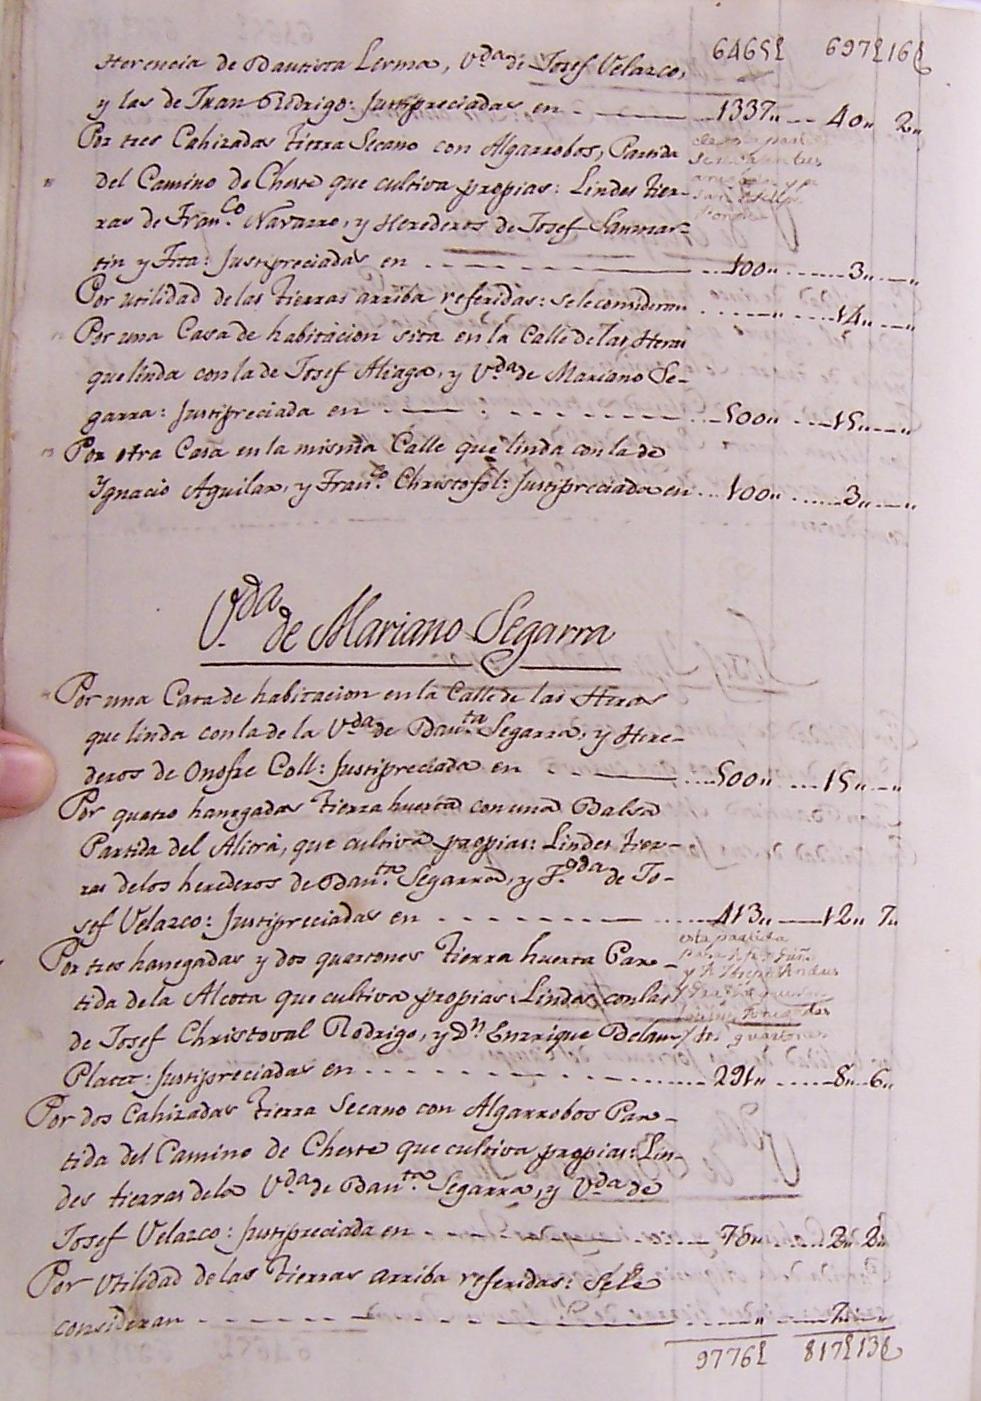 6465£ 697£16£
Herencia de Bautista Lerma, V.da de Josef Velazco,
y las de Fran Rodrigo: Justipreciadas en 1337,, 40,, 2,,
Por tres Cahizadas Tierra Secano con Algarrobos, Partida
del Camino de Cheste que cultiva propias: Lindes tier-
ras de Fran.co Navarro, y Herederos de Josef Sanmar-
tin y Fita: Justipreciadas en 100,, 3,, ,,
Por utilidad de las Tierras arriba referidas: se le consideran ,, 14,, ,,
Por una Casa de habitacion sita en la Calle de las Heras
que linda con la de Josef Aliaga, y V.da de Mariano Se-
garra: Justipreciada en 500,, 15,, ,,
Por otra Casa en la misma Calle que linda con la de
Ygnacio Aguilar, y Fran.co Christofol: Justipreciada en 100,, 3,, ,,
V.da de Mariano Segarra
Por una Casa de habitacion en la Calle de las Heras
que linda con la de la V.da de Bau.ta Segarra, y Here-
deros de Onofre Coll: Justipreciada en 500,, 15,, ,,
Por quatro hanegadas Tierra huerta con una Balsa
Partida del Alicra, que cultiva propias: Lindes tier-
ras de los herederos de Bau.ta Segarra, y V.da de Jo-
sef Velazco: Justipreciadas en 413,, 12,, 7,,
Por tres hanegadas y dos quartones Tierra huerta Par-
esta partida
tida de la Alcota que cultiva propias: Lindes con las
de Josef Christoval Rodrigo, y Dn Enrrique
quartones
Justipreciadas en 291,, 8,, 6,,
Por dos Cahizadas Tierra Secano con Algarrobos Par-
tida del Camino de Cheste que cultiva propias: Lin-
des tierras de la V.da de Bau.ta Segarra, y V.da de
Josef Velazco: Justipreciada en 75,, 2,, 2,,
Por Utilidad de las Tierras arriba referidas: Se le
consideran ,, 7,, ,,
9776£ 817£13£